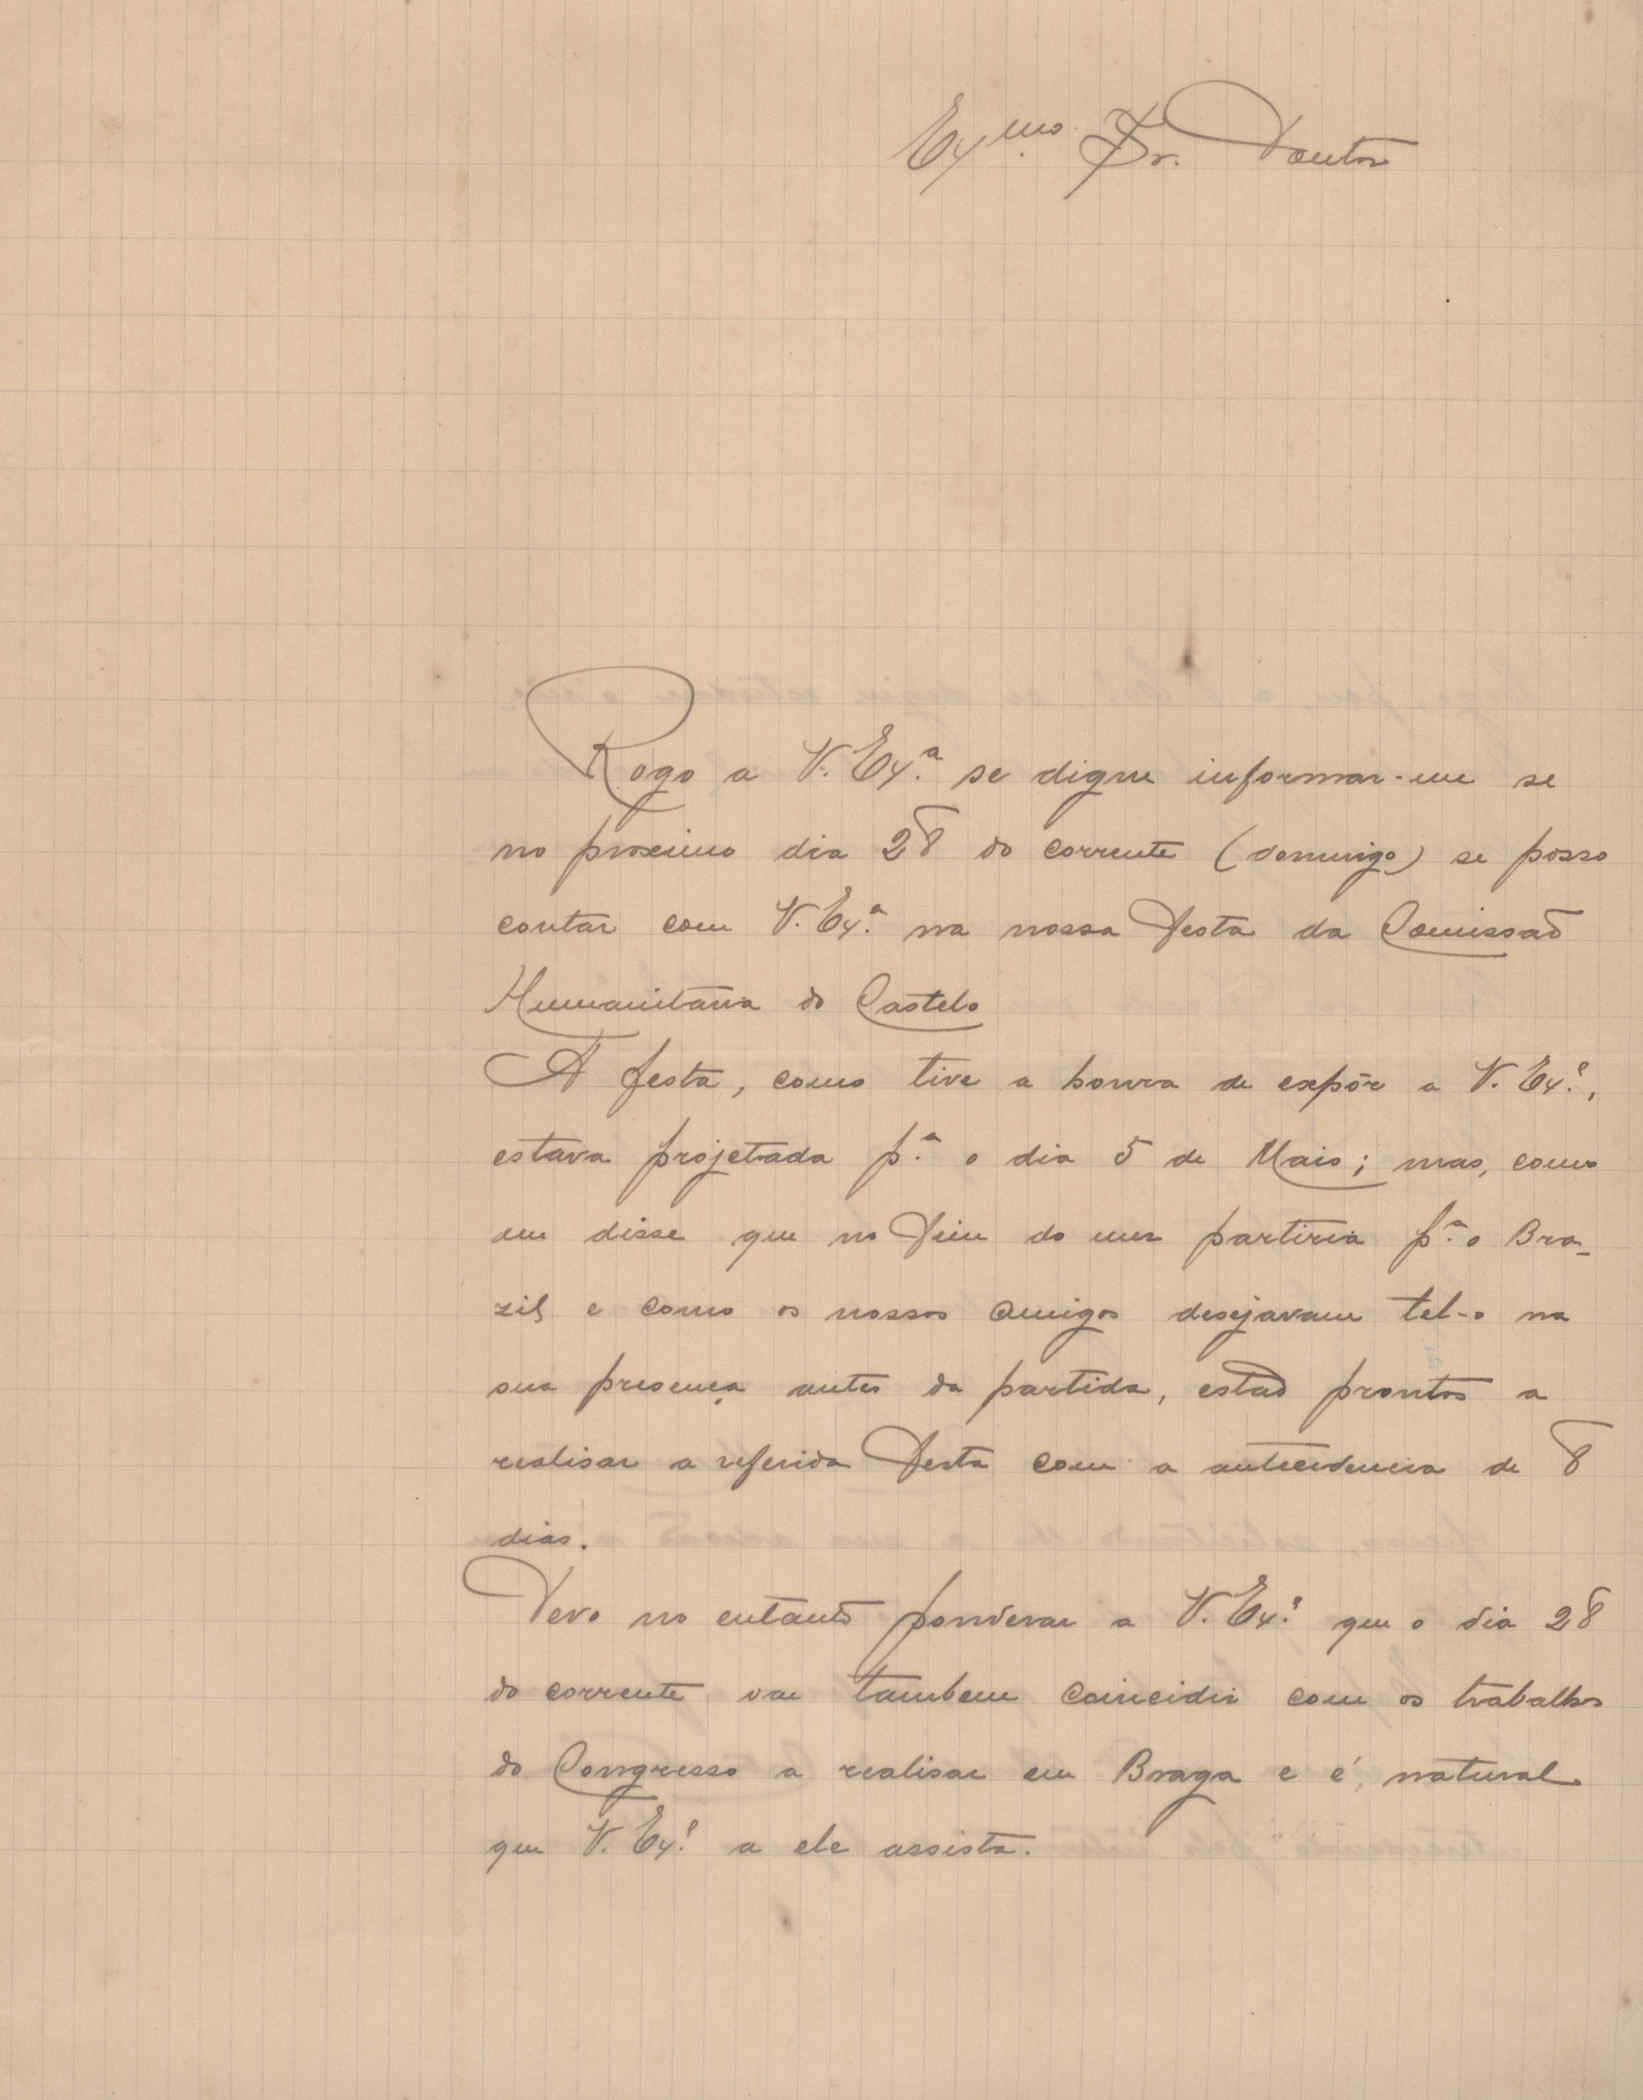 Ex.mo Sr. Doutor
Rogo a V. Ex.a se digne informar-me se
no proximo dia 28 do corrente (domingo) se posso
contar com V. Ex.a na nossa Festa da Comissão
Humanitaria do Castelo
A festa, como tive a honra de expôr a V. Ex.a,
estava projetada p.a o dia 5 de Maio; mas, como
me disse que no Fim do mez partiria p.a o Bra-
zil e como os nossos amigos desejavam tel-o na
sua presença antes da partida, estão prontos a
realisar a referida Festa com a antecedencia de 8
dias.
Devo no entanto ponderar a V. Ex.a que o dia 28
do corrente vae tambem coincidir com os trabalhos
do Congresso a realisar em Braga e é natural
que V. Ex.a a ele assista.